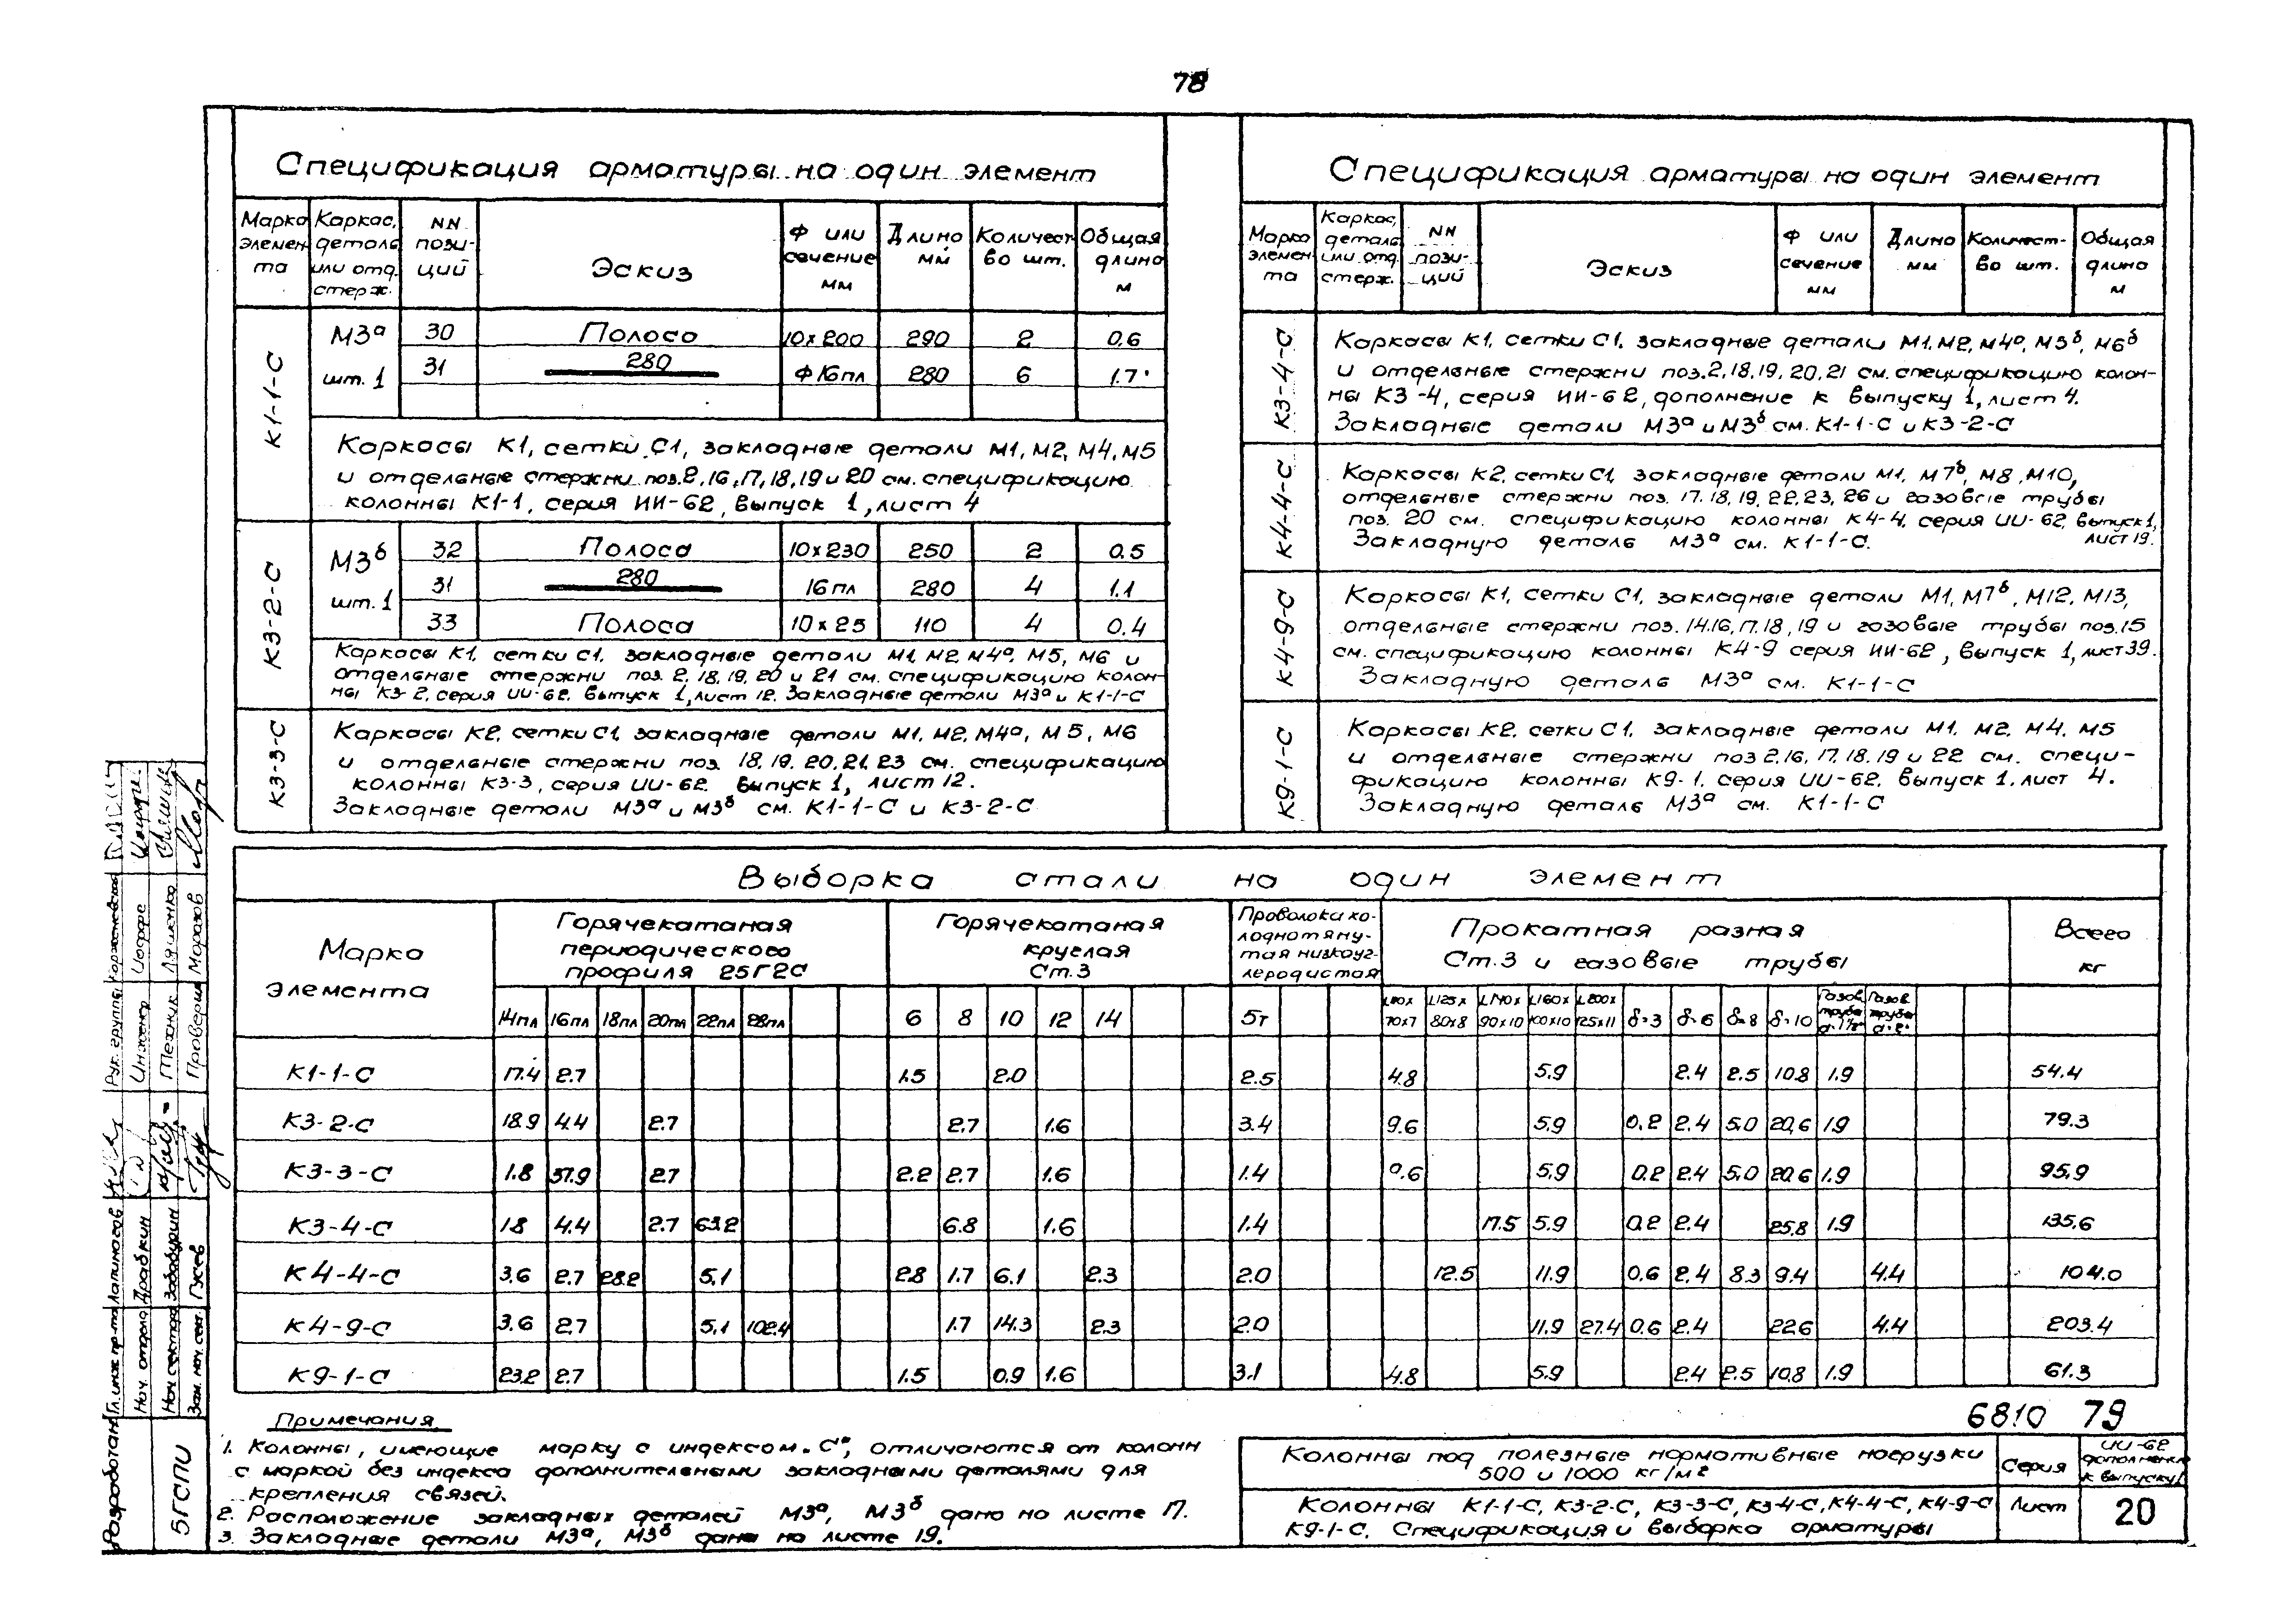 78
Спецификация арматуры на один элемент
Марка элемента | Каркас, деталь или отд. стерж. | NN позиций | Эскиз | Ф или сечение мм | Длина мм | Количество шт. | Общая длина м
К1-1-С
М3а шт. 1 | 30 | Полоса | 10х200 | 290 | 2 | 0.6
31 | 280 | Ф16пл | 280 | 6 | 1.7
Каркасы К1, сетки С1, закладные детали М1, М2, М4, М5
и отдельные стержни поз. 2,16,17,18,19 и 20 см. спецификацию
колонны К1-1, серия ИИ-62, выпуск 1, лист 4
К3-2-С
М3б шт. 1 | 32 | Полоса | 10х230 | 250 | 2 | 0.5
31 | 280 | 16пл | 280 | 4 | 1.1
33 | Полоса | 10х25 | 110 | 4 | 0.4
Каркасы К1, сетки С1, закладные детали М1, М2, М4а, М5, М6 и
отдельные стержни поз. 2, 18, 19, 20 и 21 см. спецификацию колон-
ны К3-2, серия ИИ-62, выпуск 1, лист 12. Закладные детали М3а и К1-1-С
К3-3-С
Каркасы К2, сетки С1, закладные детали М1, М2, М4а, М5, М6
и отдельные стержни поз. 18, 19, 20, 21, 23 см. спецификацию
колонны К3-3, серия ИИ-62. выпуск 1, лист 12.
Закладные детали М3а и М3б см. К1-1-С и К3-2-С
Спецификация арматуры на один элемент
Марка элемента | Каркас, деталь или отд. стерж. | NN позиций | Эскиз | Ф или сечение мм | Длина мм | Количество шт. | Общая длина м
К3-4-С
Каркасы К1, сетки С1, закладные детали М1, М2, М4а, М5б, М6б
и отдельные стержни поз. 2, 18, 19, 20, 21 см. спецификацию колон-
ны К3-4, серия ИИ-62, дополнение к выпуску 1, лист 4.
Закладные детали М3а и М3б см. К1-1-С и К3-2-С
К4-4-С
Каркасы К2, сетки С1, закладные детали М1, М7б, М8, М10,
отдельные стержни поз. 17, 18, 19, 22, 23, 26 и газовые трубы
поз. 20 см. спецификацию колонны К4-4, серия ИИ-62, выпуск 1,
лист 19.
Закладную деталь М3а см. К1-1-С.
К4-9-С
Каркасы К1, сетки С1, закладные детали М1, М7б, М12, М13,
отдельные стержни поз. 14, 16, 17, 18, 19 и газовые трубы поз. 15
см. спецификацию колонны К4-9 серия ИИ-62, выпуск 1, лист 39.
Закладную деталь М3а см. К1-1-С
К9-1-С
Каркасы К2, сетки С1, закладные детали М1, М2, М4, М5
и отдельные стержни поз 2, 16, 17, 18, 19 и 22 см. специ-
фикацию колонны К9-1, серия ИИ-62, выпуск 1, лист 4.
Закладную деталь М3а см. К1-1-С
Выборка стали на один элемент
Марка элемента | Горячекатаная периодического профиля 25Г2С | Горячекатаная круглая Ст.3 | Проволока холоднотянутая низкоуглеродистая | Прокатная разная Ст.3 и газовые трубы | Всего кг
14пл | 16пл | 18пл | 20пл | 22пл | 28пл | 6 | 8 | 10 | 12 | 14 | 5т | L110х70х7 | L125х80х8 | L140х90х10 | L160х100х10 | L200х125х11 | δ=3 | δ=6 | δ=8 | δ=10 | Газов. труба d=1½" | Газов. труба d=2"
К1-1-С | 17.4 | 2.7 | 1.5 | 2.0 | 2.5 | 4.8 | 5.9 | 2.4 | 2.5 | 10.8 | 1.9 | 54.4
К3-2-С | 18.9 | 4.4 | 2.7 | 2.7 | 1.6 | 3.4 | 9.6 | 5.9 | 0.2 | 2.4 | 5.0 | 20.6 | 1.9 | 79.3
К3-3-С | 1.8 | 37.9 | 2.7 | 2.2 | 2.7 | 1.6 | 1.4 | 9.6 | 5.9 | 0.2 | 2.4 | 5.0 | 20.6 | 1.9 | 95.9
К3-4-С | 1.8 | 4.4 | 2.7 | 63.2 | 6.8 | 1.6 | 1.4 | 17.5 | 5.9 | 0.2 | 2.4 | 25.8 | 1.9 | 135.6
К4-4-С | 3.6 | 2.7 | 28.2 | 5.1 | 2.8 | 1.7 | 6.1 | 2.3 | 2.0 | 12.5 | 11.9 | 0.6 | 2.4 | 8.3 | 9.4 | 4.4 | 104.0
К4-9-С | 3.6 | 2.7 | 5.1 | 102.4 | 1.7 | 14.3 | 2.3 | 2.0 | 11.9 | 27.4 | 0.6 | 2.4 | 22.6 | 4.4 | 203.4
К9-1-С | 23.2 | 2.7 | 1.5 | 0.9 | 1.6 | 3.1 | 4.8 | 5.9 | 2.4 | 2.5 | 10.8 | 1.9 | 61.3
Примечания
1. Колонны, имеющие марку с индексом „С", отличаются от колонн
с маркой без индекса дополнительными закладными деталями для
крепления связей.
2. Расположение закладных деталей М3а, М3б дано на листе 17.
3. Закладные детали М3а, М3б даны на листе 19.
6810 79
Колонны под полезные нормативные нагрузки
500 и 1000 кг/м2
Серия
ИИ-62
дополнение
к выпуску 1
Колонны К1-1-С, К3-2-С, К3-3-С, К3-4-С, К4-4-С, К4-9-С
К9-1-С. Спецификация и выборка арматуры
Лист
20
Разработан
БГСПИ
Гл. инж. пр-та
Нач. отдела Драбкин
Нач. сектора Забабурин
Зам. нач. сект. Гусев
Рук. группы
Инженер Иоффе
Техник Ляшенко
Проверил Морозов